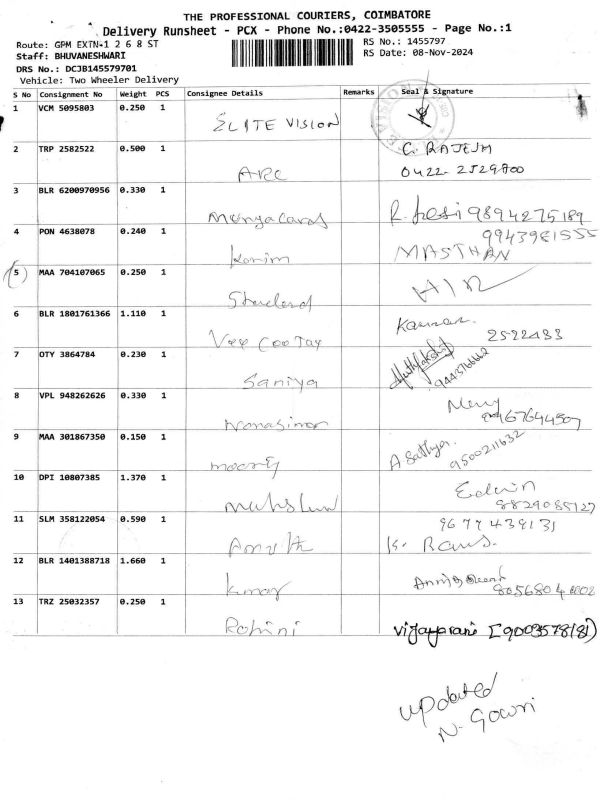 THE PROFESSIONAL COURIERS, COIMBATORE
Delivery Runsheet - PCX - Phone No.:0422-3505555 - Page No.:1
Route: GPM EXTN-1 2 6 8 ST
RS No.: 1455797
Staff: BHUVANESHWARI
RS Date: 08-Nov-2024
DRS No.: DCJB145579701
Vehicle: Two Wheeler Delivery
S No Consignment No Weight PCS Consignee Details Remarks Seal & Signature
1 VCM 5095803 0.250 1 ELITE VISION
2 TRP 2582522 0.500 1 ARC C. RAJESH
0422-2529700
3 BLR 6200970956 0.330 1 R. 9894275189
4 PON 4638078 0.240 1 Karim MASTHAN 9943981555
5 MAA 704107065 0.250 1
6 BLR 1801761366 1.110 1 2522433
7 OTY 3864784 0.230 1 Saniya
8 VPL 948262626 0.330 1
9 MAA 301867350 0.150 1 A Sathya.
9500211632
10 DPI 10807385 1.370 1 Edwin
11 SLM 358122054 0.590 1 9677439131
K.
12 BLR 1401388718 1.660 1 Kumar
13 TRZ 25032357 0.250 1 Rohini vijayarani [9003578181)
updated
N. Gowri